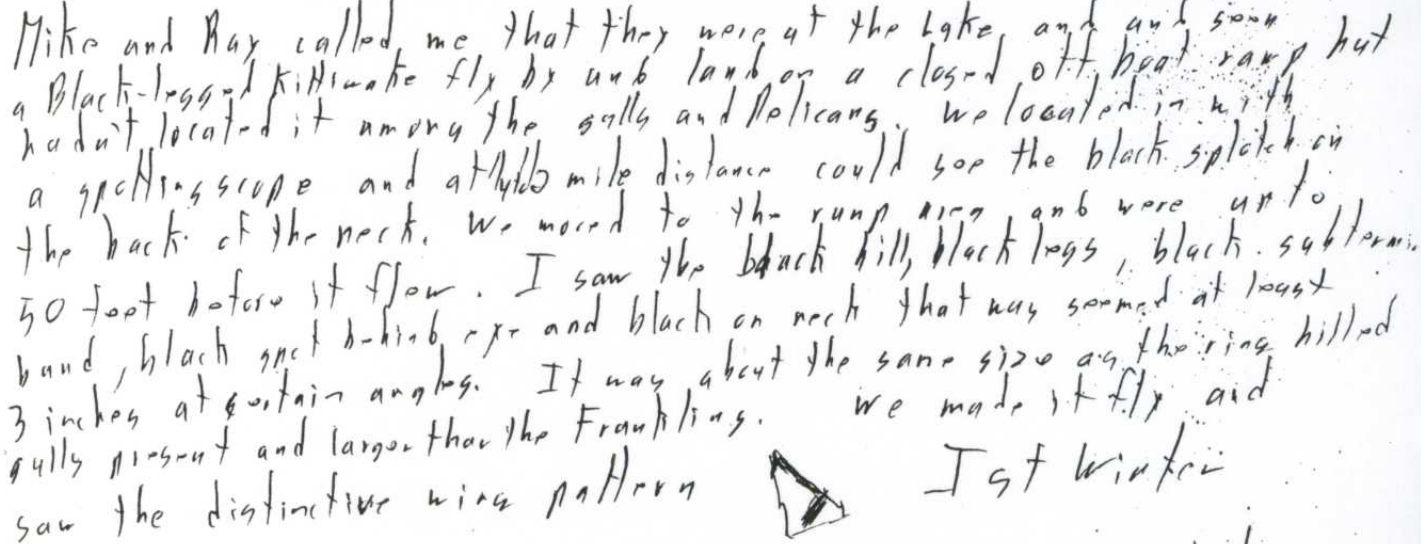 Mike and Ray called me that they were at the Lake and and seen
a Black-legged Kittiwake fly by and land on a closed off boat ramp but
hadn't located it among the gulls and Pelicans. We located it with
a spotting scope and at mile distance could see the black splotch on
the back of the neck. We moved to the ramp area and were up to
50 feet before it flew. I saw the black bill, black legs, black subtermi
band, black spot behind eye and black on neck that was seemed at least
3 inches at certain angles. It was about the same size as the ring billed
gulls present and larger than the Franklins. We made it fly and
saw the distinctive wing pattern 1st Winter